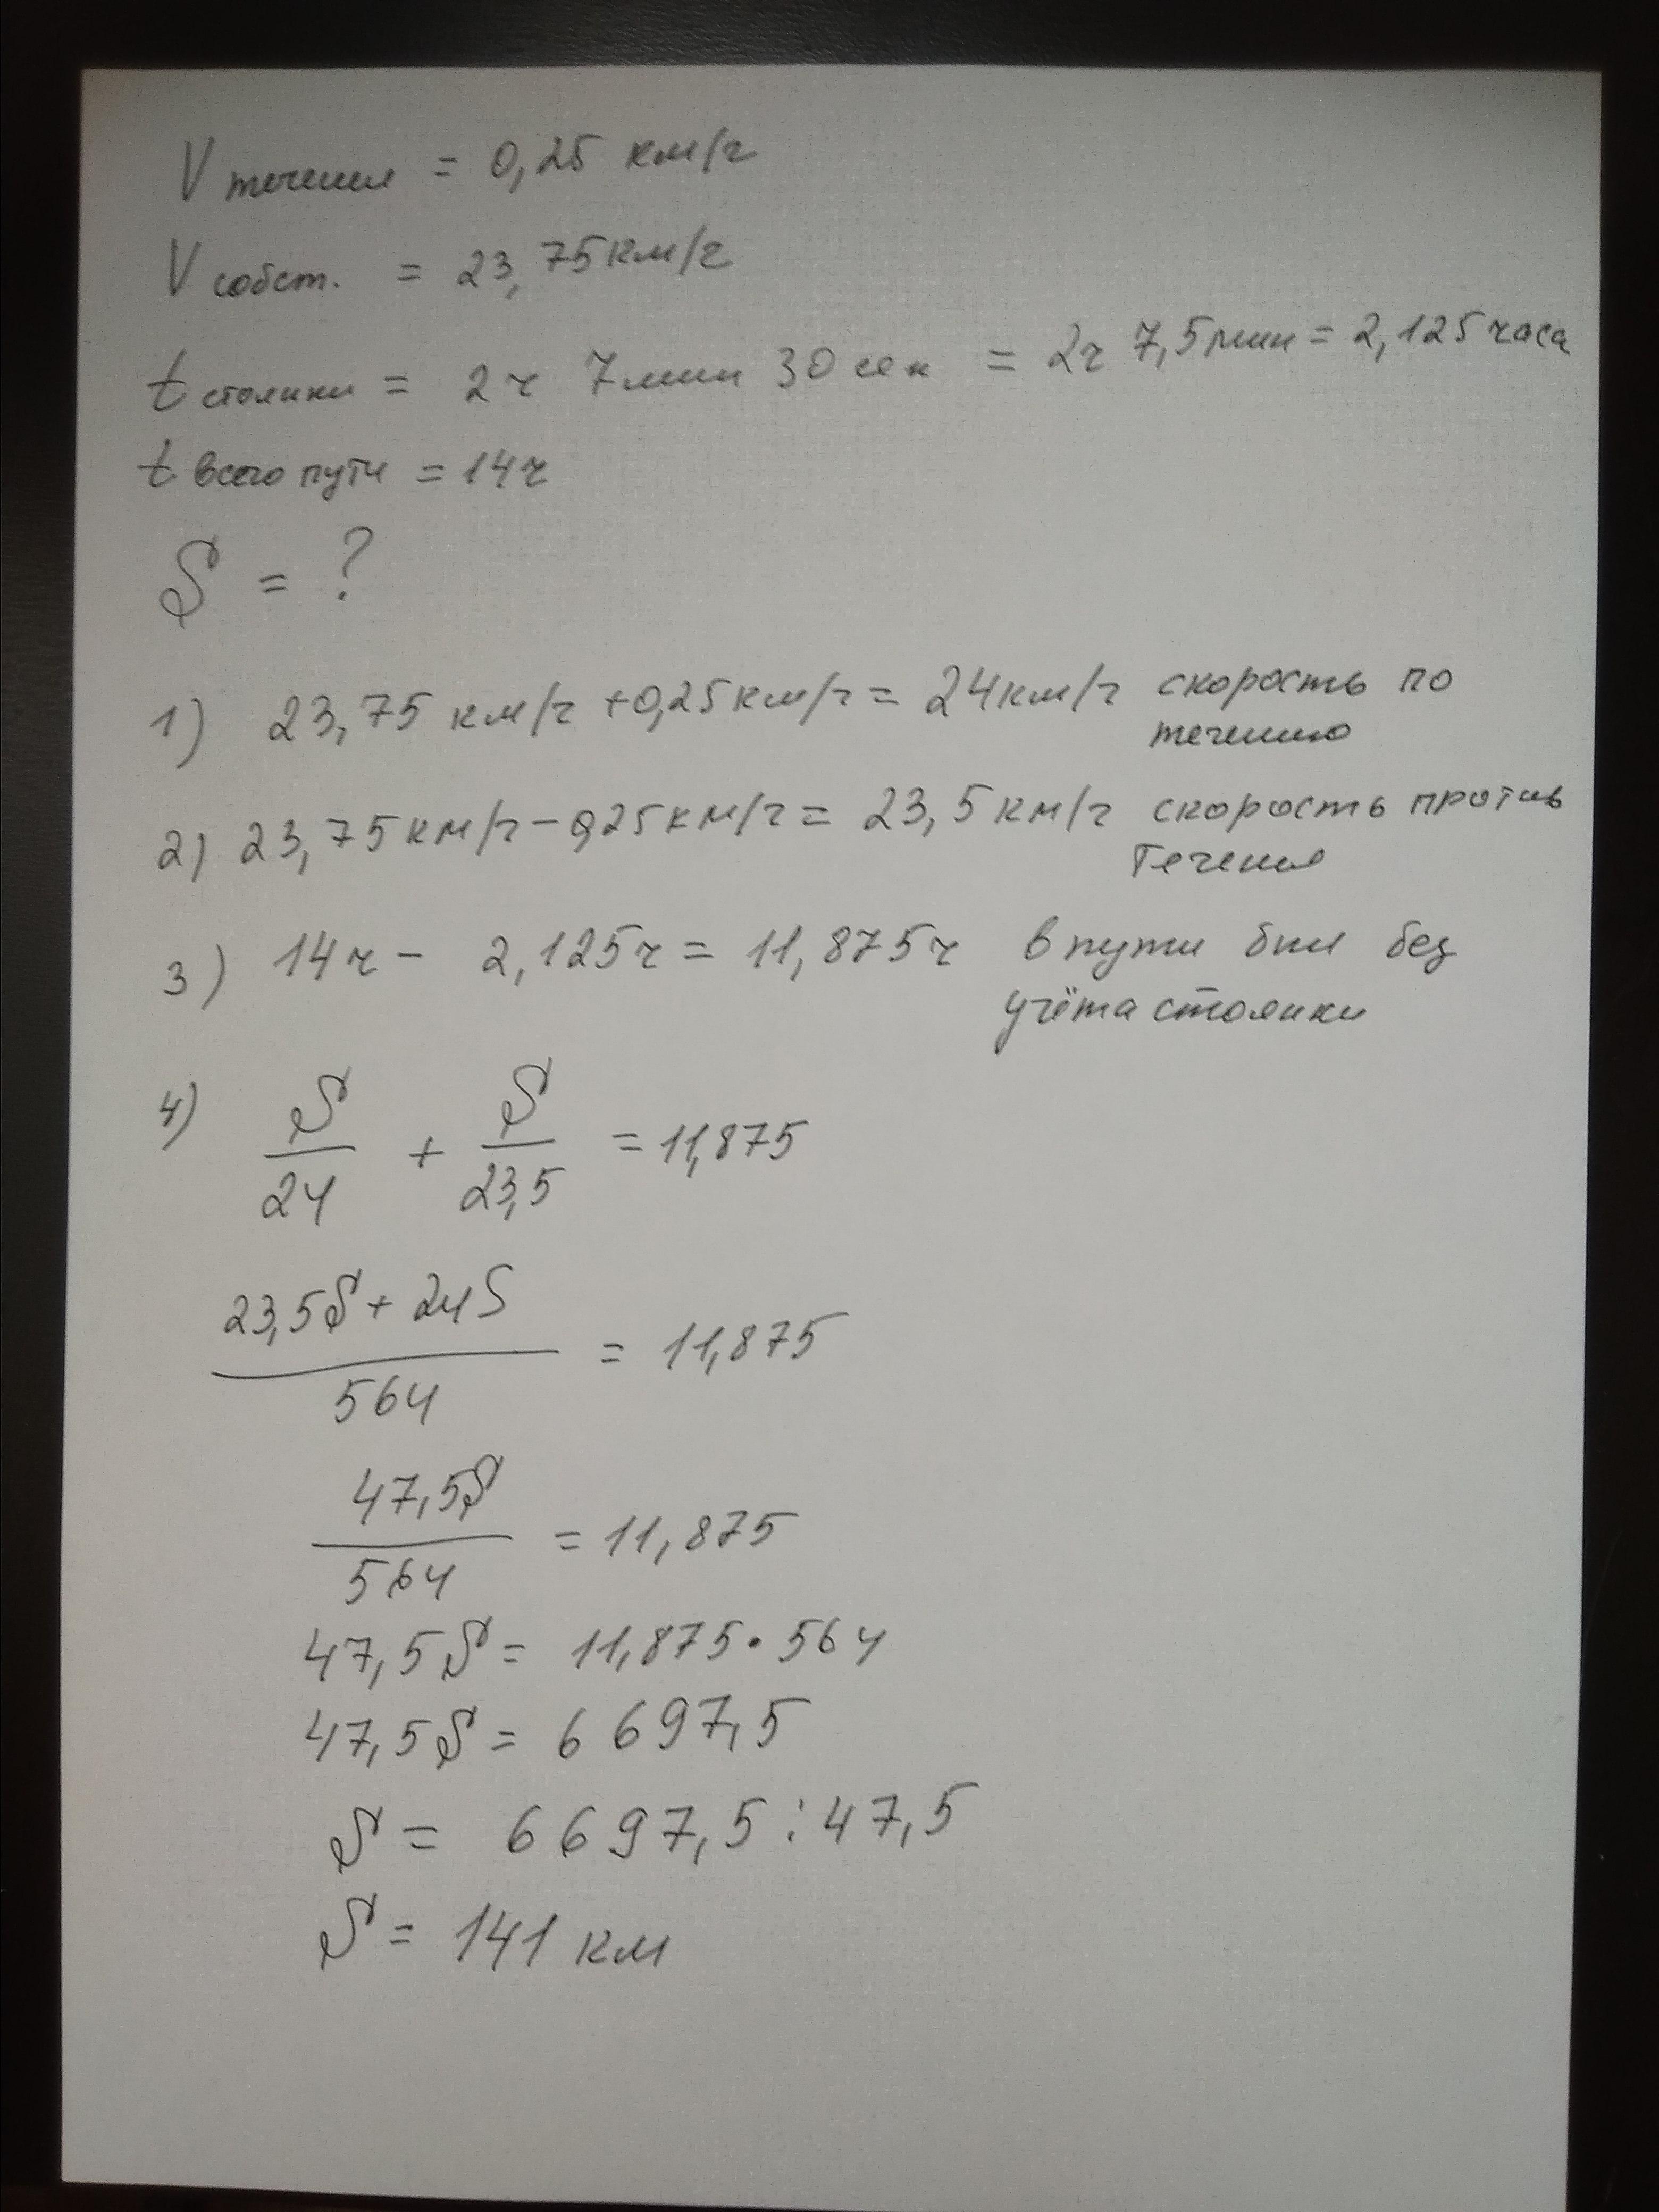 V течения = 0,25 км/ч
V собст. = 23,75 км/ч
t стоянки = 2 ч 7 мин 30 сек = 2ч 7,5 мин = 2,125 часа
t всего пути = 14 ч
S = ?
1) 23,75 км/ч + 0,25 км/ч = 24 км/ч скорость по
течению
2) 23,75 км/ч - 0,25 км/ч = 23,5 км/ч скорость против
течения
3) 14 ч - 2,125 ч = 11,875 ч в пути был без
учёта стоянки
4) S/24 + S/23,5 = 11,875
23,5S + 24S
/564 = 11,875
47,5S
/564 = 11,875
47,5S = 11,875 · 564
47,5S = 6697,5
S = 6697,5 : 47,5
S = 141 км